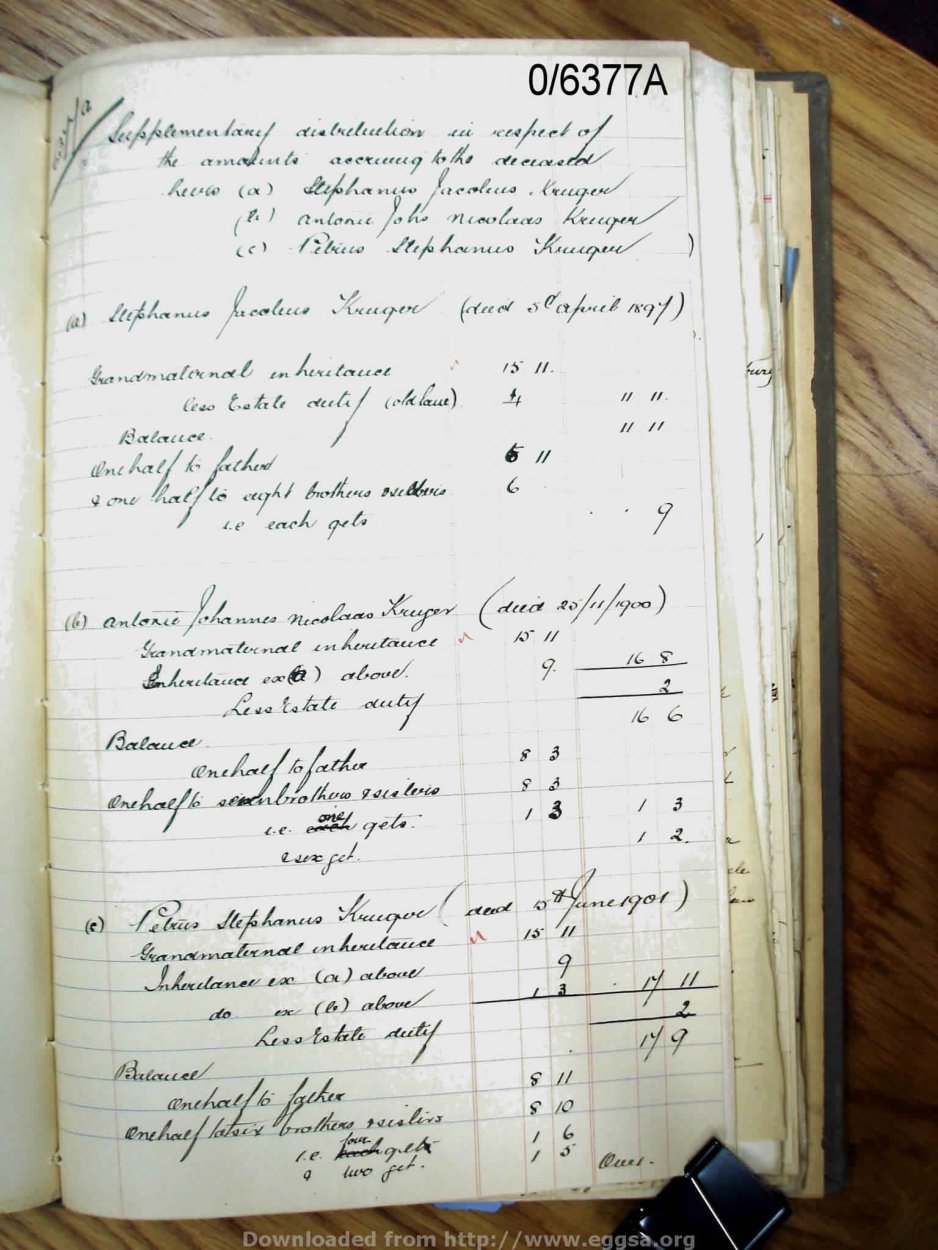 0/6377A
Supplementary distribution in respect of
the amounts accruing to the deceased
heirs (a) Stephanus Jacobus Kruger
(b) Antonie Johs Nicolaas Kruger
(c) Petrus Stephanus Kruger )
(a) Stephanus Jacobus Kruger (died 5d April 1897)
Grandmaternal inheritance 15 11.
less Estate duty (old law) 4 11 11.
Balance. 11 11
One half to father 5 11
& one half to eight brothers & sisters 6
i.e each gets 9
(b) Antonie Johannes Nicolaas Kruger (died 25/11/1900)
Grandmaternal inheritance 15 11
Inheritance ex (a) above. 9. 16 8
Less Estate duty 2
Balance. 16 6
One half to father 8 3
One half to seven brothers & sisters 8 3
i.e. each one gets. 1 3 1 3
& six get. 1 2.
(c) Petrus Stephanus Kruger (died 15th June 1901)
Grandmaternal inheritance 15 11
Inheritance ex (a) above 9
do ex (b) above 1 3 17 11
Less Estate duty 2
Balance 17 9
One half to father 8 11
One half to six brothers & sisters 8 10
i.e. each four gets 1 6
& two get. 1 5 Over.
Downloaded from http://www.eggsa.org